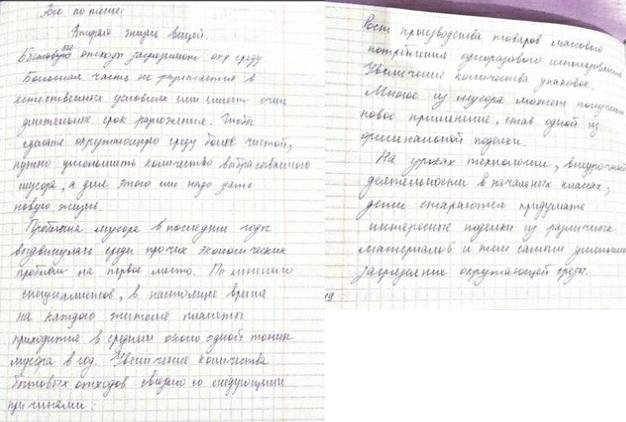 Все по теме:
Вторая жизнь вещей.
Бытовые отходы загрязняют окр среду
Большая часть не разлагается в
естественных условиях или имеет очень
длительный срок разложения. Чтобы
сделать окружающую среду более чистой,
нужно уменьшить количество выбрасываемого
мусора, а для этого им надо дать
новую жизнь.
Проблема мусора в последние годы
выдвинулась среди прочих экологических
проблем на первое место. По мнению
специалистов, в настоящее время
на каждого жителя планеты
приходится в среднем около одной тонны
мусора в год. Увеличение количества
бытовых отходов связано со следующими
причинами:
Рост производства товаров массового
потребления одноразового использования.
Увеличение количества упаковок.
Многое из мусора может получить
новое применение, став одной из
оригинальной поделки.
На уроках технологии, внеурочной
деятельности в начальных классах,
дети стараются придумать
интересные поделки из различных
материалов и тем самым уменьшить
загрязнение окружающей среды.
19